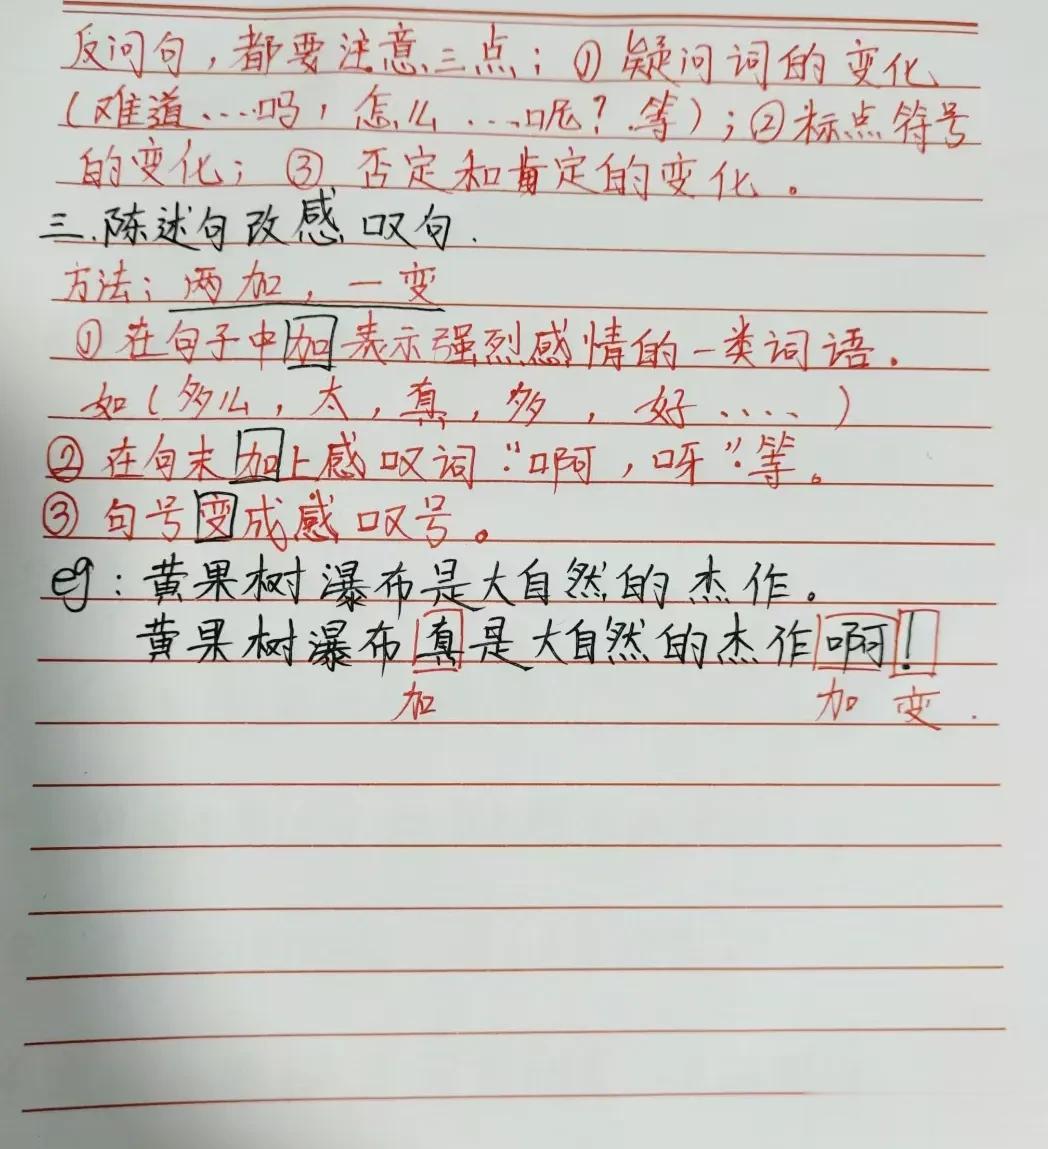 反问句，都要注意三点；①疑问词的变化
（难道……吗，怎么……呢？等）；②标点符号
的变化；③ 否定和肯定的变化。
三.陈述句改感叹句.
方法：两加，一变
①在句子中加表示强烈感情的一类词语.
如（多么，太，真，多，好……）
②在句末加上感叹词“啊，呀”等。
③句号变成感叹号。
eg：黄果树瀑布是大自然的杰作。
黄果树瀑布真是大自然的杰作啊！
加 加 变.